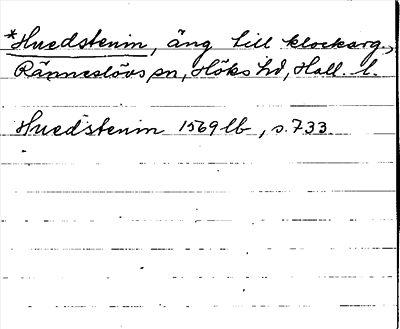 *Huedstenin, äng till klockarg.,
Ränneslövs sn, Höks hd, Hall. l.
Huedstenin 1569 lb, s. 733.